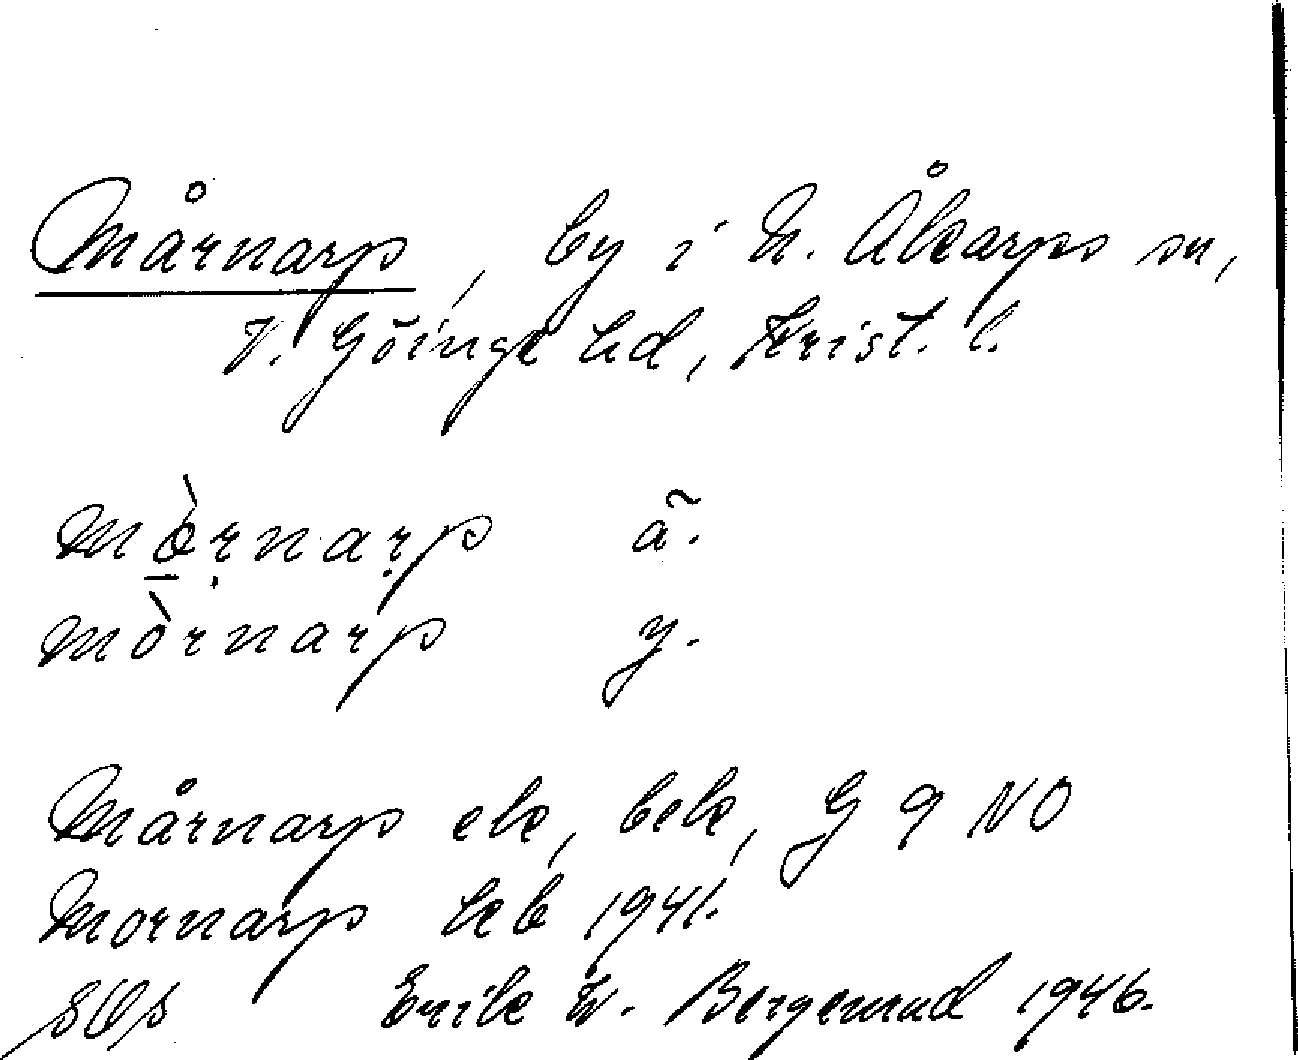 Mårnarp, by i N. Åkarps sn,
V. Göinge hd, Krist. l.
mò̠ṛnaṛp ä.
mòrnarp y.
Mårnarp ek, bek, G 9 NO
Mornarp kb 1941.
Erik W. Bergenrud 1946.